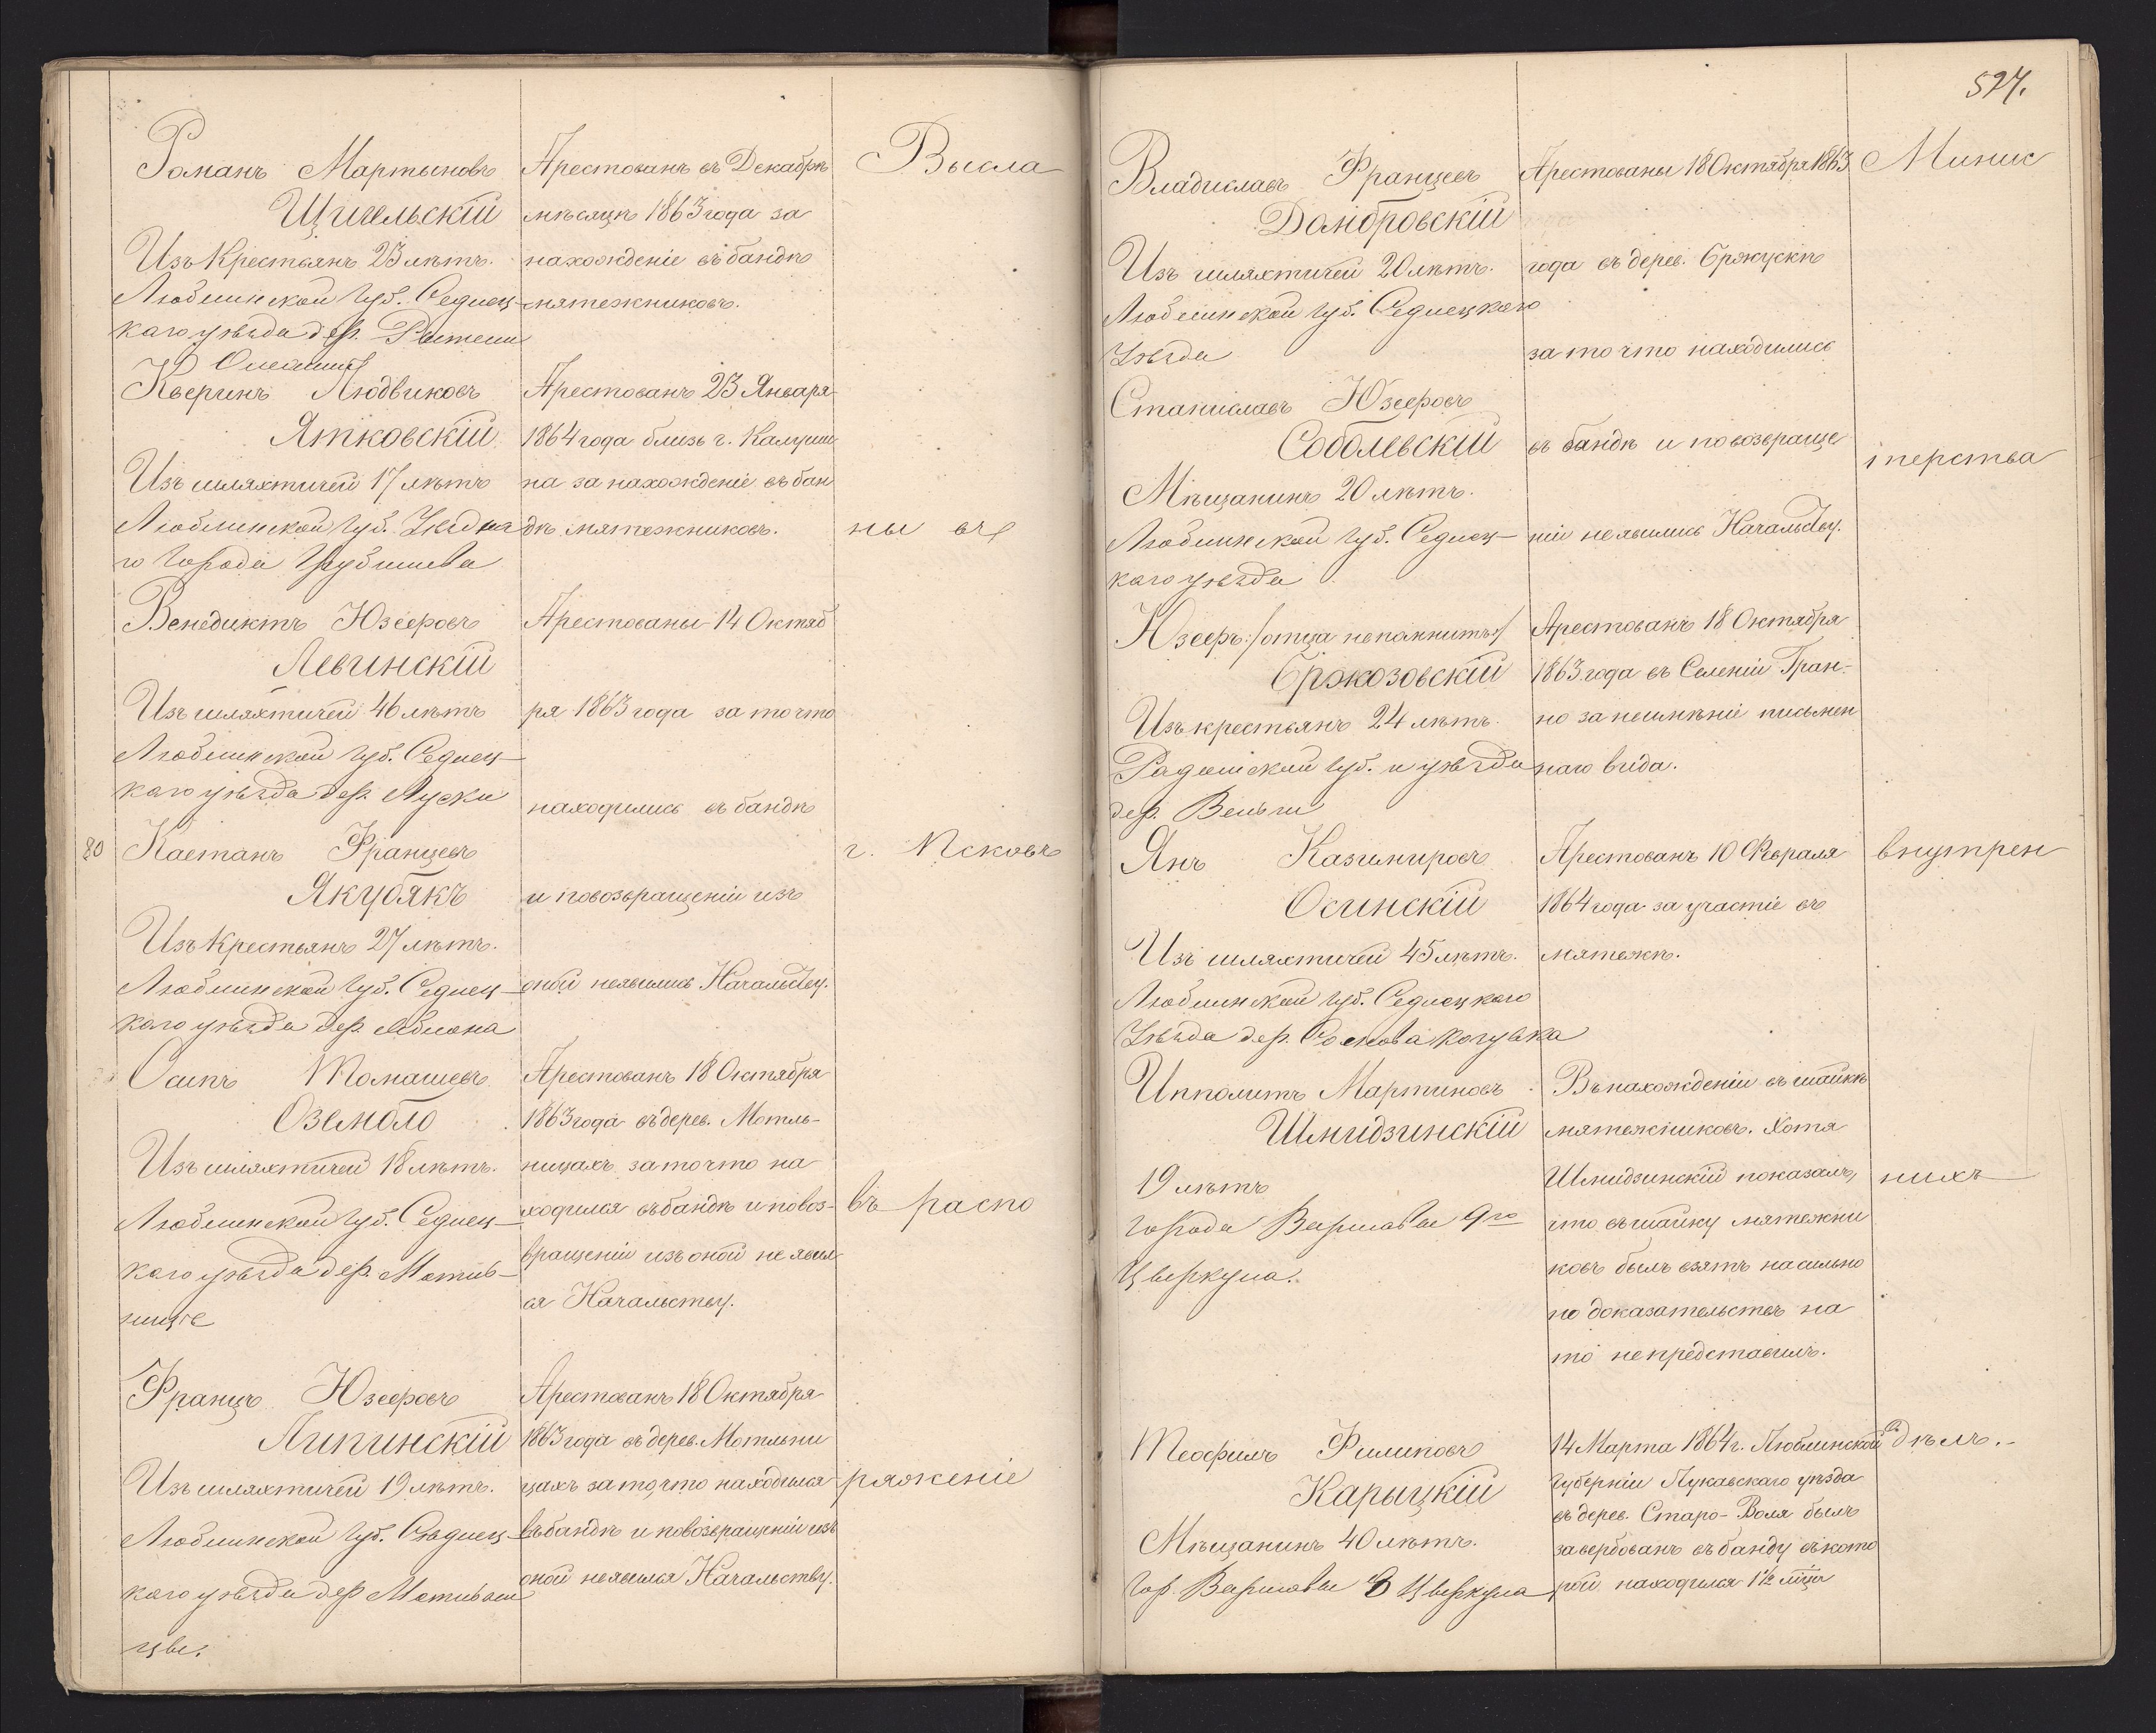 Романъ Мартыновъ
Щигельскій
Изъ Крестьянъ 23 лѣтъ.
Люблинской Губ. Седлец-
каго уѣзда дер.
Арестованъ въ Декабрѣ
мѣсяцѣ 1863 года за
нахожденіе въ бандѣ
мятежниковъ.
Высла
Кверинъ Людвиковъ
Ятковскій
Изъ шляхтичей 17 лѣтъ
Люблинской Губ. Уѣздна
го Города Грубешева
Арестованъ 23 Января
1864 года близь г. Калуши
на за нахожденіе въ бан
дѣ мятежниковъ.
ны въ
Венедиктъ Юзефовъ
Левинскій
Изъ шляхтичей 46 лѣтъ
Люблинской Губ. Седлец-
каго уѣзда дер. Луски
Арестованы 14 Октяб
ря 1863 года за то что
находились въ бандѣ
80
Каетанъ Францевъ
Якубякъ
Изъ Крестьянъ 27 лѣтъ.
Люблинской Губ. Седлец-
каго уѣзда дер.
и по возвращеніи изъ
оной неявились Начальству.
г. Псковъ
Осипъ Томашевъ
Озембло
Изъ шляхтичей 18 лѣтъ.
Люблинской Губ. Седлец-
каго уѣзда дер. Мотыль-
ницѣ
Арестованъ 18 Октября
1863 года въ дерев. Мотыль-
ницахъ за то что на
ходился въ бандѣ и повоз-
вращеніи изъ оной не явил
ся Начальству.
въ распо
Францъ Юзефовъ
Липинскій
Изъ шляхтичей 19 лѣтъ.
Люблинской Губ. Сѣдлец-
каго уѣзда дер
цы.
Арестованъ 18 Октября
1863 года въ дерев. Мотыльни
цахъ за то, что находился
въ бандѣ и повозвращеніи изъ
оной неявился Начальству.
ряженіе
527.
Владиславъ Францевъ
Домбровскій
Изъ шляхтичей 20 лѣтъ.
Люблинской Губ. Седлецкаго
Уѣзда
Арестованы 18 Октября 1863
года въ дерев. Бржускѣ
за то что находились
Минис
Станиславъ Юзефовъ
Соболевскій
Мѣщанинъ 20 лѣтъ.
Люблинской Губ. Седлец-
каго уѣзда
въ бандѣ и по возвраще
ніи неявились Начальству.
терства
Юзефъ /отца непомнитъ/
Бржозовскій
Изъ крестьянъ 24 лѣтъ.
Радомской Губ. и уѣзда
дер.
Арестованъ 18 Октября
1863 года въ Селеніи Гран-
но за неимѣніе письмен
наго вида.
Янъ Казимировъ
Осинскій
Изъ шляхтичей 45 лѣтъ.
Люблинской Губ. Седлецкаго
Уѣзда дер.
Арестованъ 10 Февраля
1864 года за участіе въ
мятежѣ.
внутрен
Ипполитъ Мартиновъ
Шмидзинскій
19 лѣтъ
Города Варшавы 9го
Цыркула.
Въ нахожденіи въ шайкѣ
мятежниковъ. Хотя
Шмидзинскій показалъ,
что въ шайку мятежни
ковъ былъ взятъ насильно
но доказательствъ на
то непредставилъ.
нихъ
Теофилъ Филиповъ
Карыцкій
Мѣщанинъ 40 лѣтъ.
Гор. Варшавы 8 Цыркула
14 Марта 1864 г. Люблинской
Губерніи Луковскаго уѣзда
въ дерев. Старо-Воля былъ
завербованъ въ банду въ кото
рой находился 1½ мца
дѣлъ.